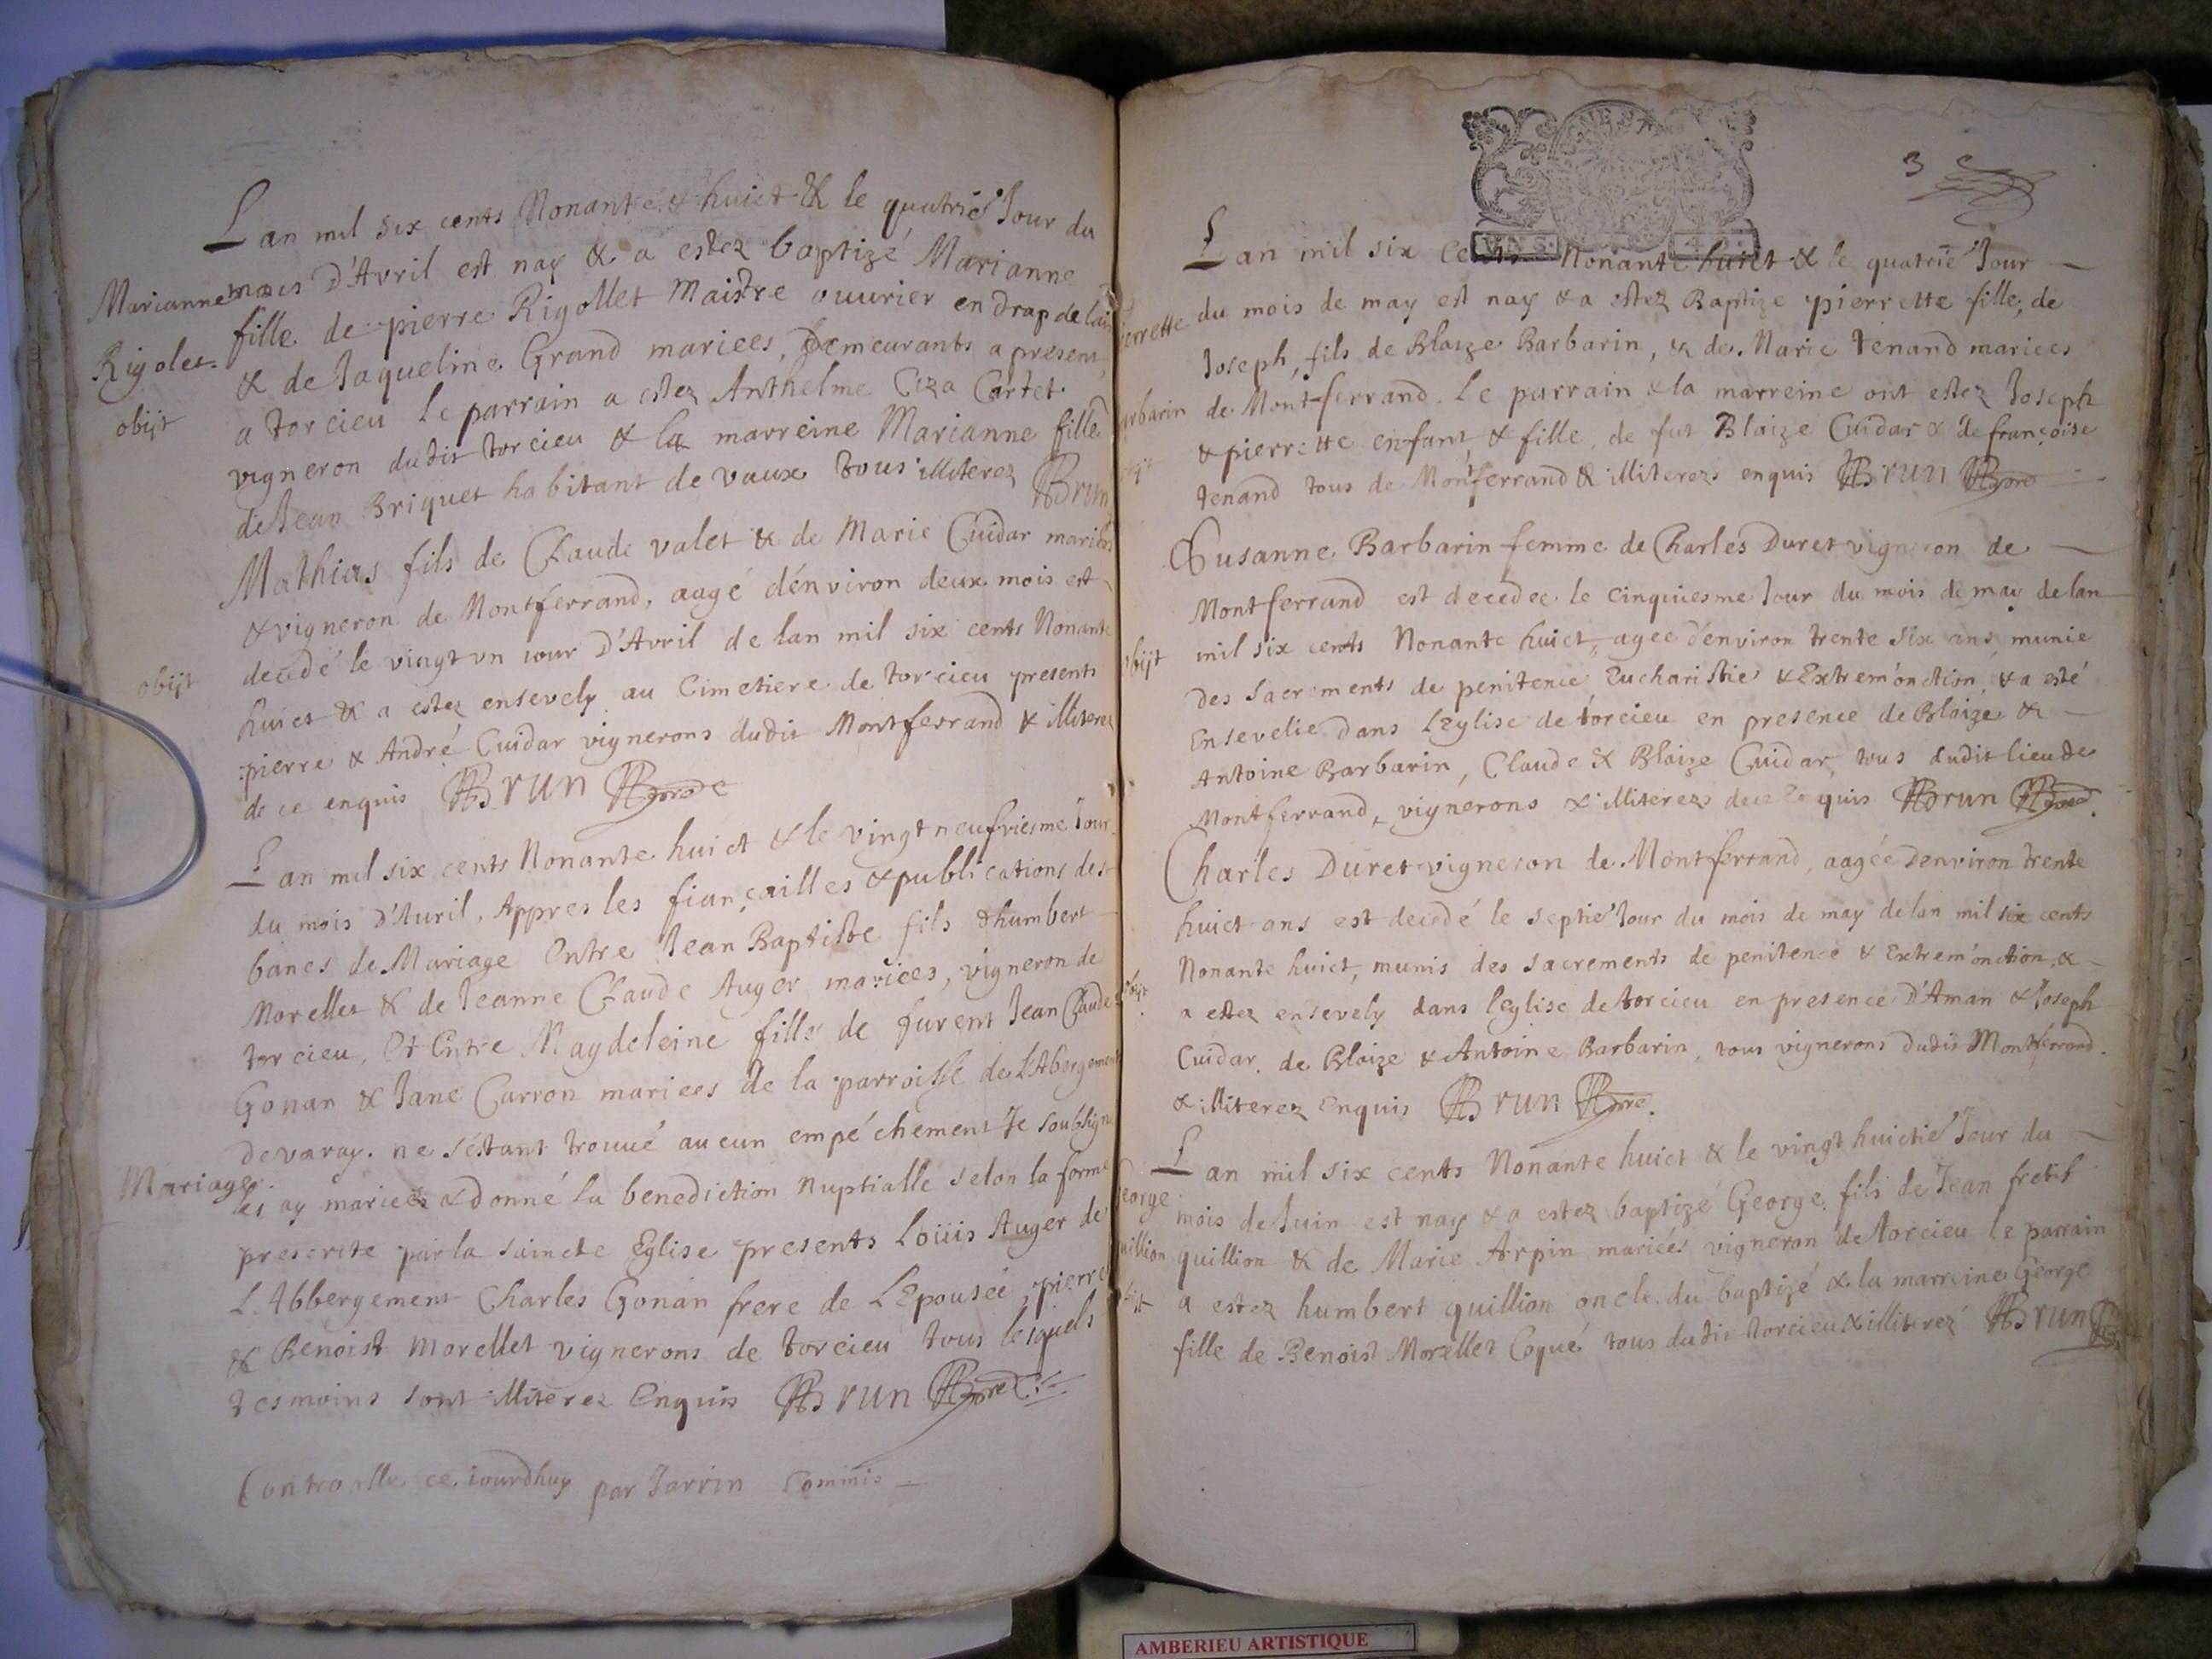 Lan mil six cents Nonante & huict & le quatrie Jour du
Marianne mois D'Avril est nay & a estez baptizé Marianne
fille de pierre Rigollet Maistre ouurier en drap de lai
Rigolet.
& de Jaqueline Grand mariees, Demeurants a present
obijt
a torcieu le parrain a estez Anthelme Ciza Cartet
vigneron dudit torcieu & la marreine Marianne fille
de Jean Briquet habitant de vaux tous illiterez Brun
Mathias fils de Claude valet & de Marie Cuidar mariees
& vigneron de Montferrand, aagé d'énviron deux mois est
decedé le vingt vn iour D'Avril de lan mil six cents Nonante
obijt
huict & a estez ensevely au Cimetiere de torcieu presents
pierre & André Cuidar vignerons dudit Montferrand & illiterez
de ce enquis Brun
Lan mil six cents Nonante huict & le vingt neufviesme Jour
du mois D'Auril. Appres les fiançailles & publications des
bancs de Mariage Entre Jean Baptiste fils dhumbert
Morellet & de Jeanne Claude Auger mariees, vigneron de
torcieu, Et Entre Magdeleine fille de furent Jean Claude
Gonan & Jane Carron mariees de la parroisse de L'Abergement
de varay. ne s'éstant trouué aucun empéchement Je soubsigne
Mariage.
les ay mariees & donné la benediction Nuptialle selon la forme
prescrite par la saincte Eglise presents Loüis Auger de
L'Abbergement Charles Gonan frere de L'Epouseé, pierre
& Benoist Morellet vignerons de torcieu tous lesquels
tesmoins sont illiterez Enquis Brun
Controolle ce iourdhuy par Jarrin Commis
3
Lan mil six cents Nonante huict & le quatrie Jour
du mois de may est nay & a estez Baptize pierrette fille, de
errette
Joseph, fils de Blaize Barbarin, & de Marie tenand mariees
arbarin de Montferrand. Le parrain & la marreine ont estez Joseph
& pierrette enfant & fille de fut Blaize Cuidar & de françoise
tenand tous de Montferrand & illiterez enquis Brun
Susanne Barbarin femme de Charles Duret vigneron de
Montferrand est decedee le cinquiesme Jour du mois de may de lan
obijt mil six cents Nonante huict, agee d'énviron trente six ans munie
des sacrements de penitence Eucharistie & Extrem'onction, & a esté
Ensevelie dans L'Eglise de torcieu en presence de Blaize &
Antoine Barbarin, Claude & Blaize Cuidar, tous dudit lieu de
Montferrand, vignerons & illiterez de ce enquis Brun
Charles Duret vigneron de Montferrand, aagée denviron trente
huict ans est decedé le septie Jour du mois de may de lan mil six cents
Nonante huict, munis des sacrements de penitence & Extrem'onction, &
obijt
a estez ensevely dans l'eglise de torcieu en presence D'Aman & Joseph
Cuidar, de Blaize & Antoine Barbarin, tous vignerons dudit Montferrand.
& illiterez Enquis Brun
Lan mil six cents Nonante huict & le vingt huictie Jour du
george
mois de Juin est nay & a estez baptizé George fils de Jean
uillion quillion & de Marie Arpin mariées vigneron de torcieu le parrain
obijt a estez humbert quillion oncle du baptizé & la marreine George
fille de Benoist Morellet Coqué tous dudit torcieu & illiterez Brun
AMBERIEU ARTISTIQUE